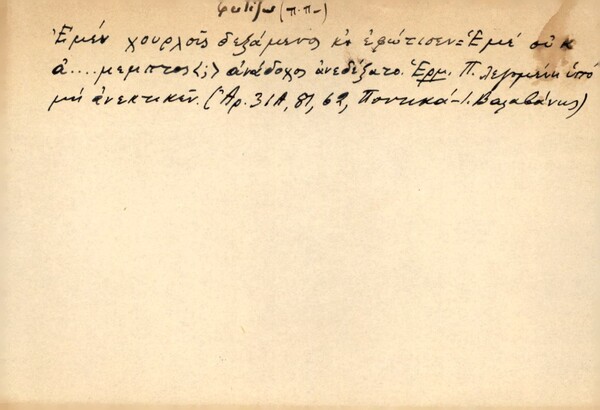 φωτίζω (π.π-)
Ἐμέν χουρλοῖς δεξάμενος κι ἐφώτισεν = Ἐμέ οὐκ
ἀ....μεμπτος <;> ἀνάδοχος ἀνεδέξατο. Ἑρμ. Π. λεγομένη ὑπό
μή ἀνεκτικῶν. (Ἀρ. 31Α, 81, 62, Ποντικά - Ι. Βαλαβάνης)